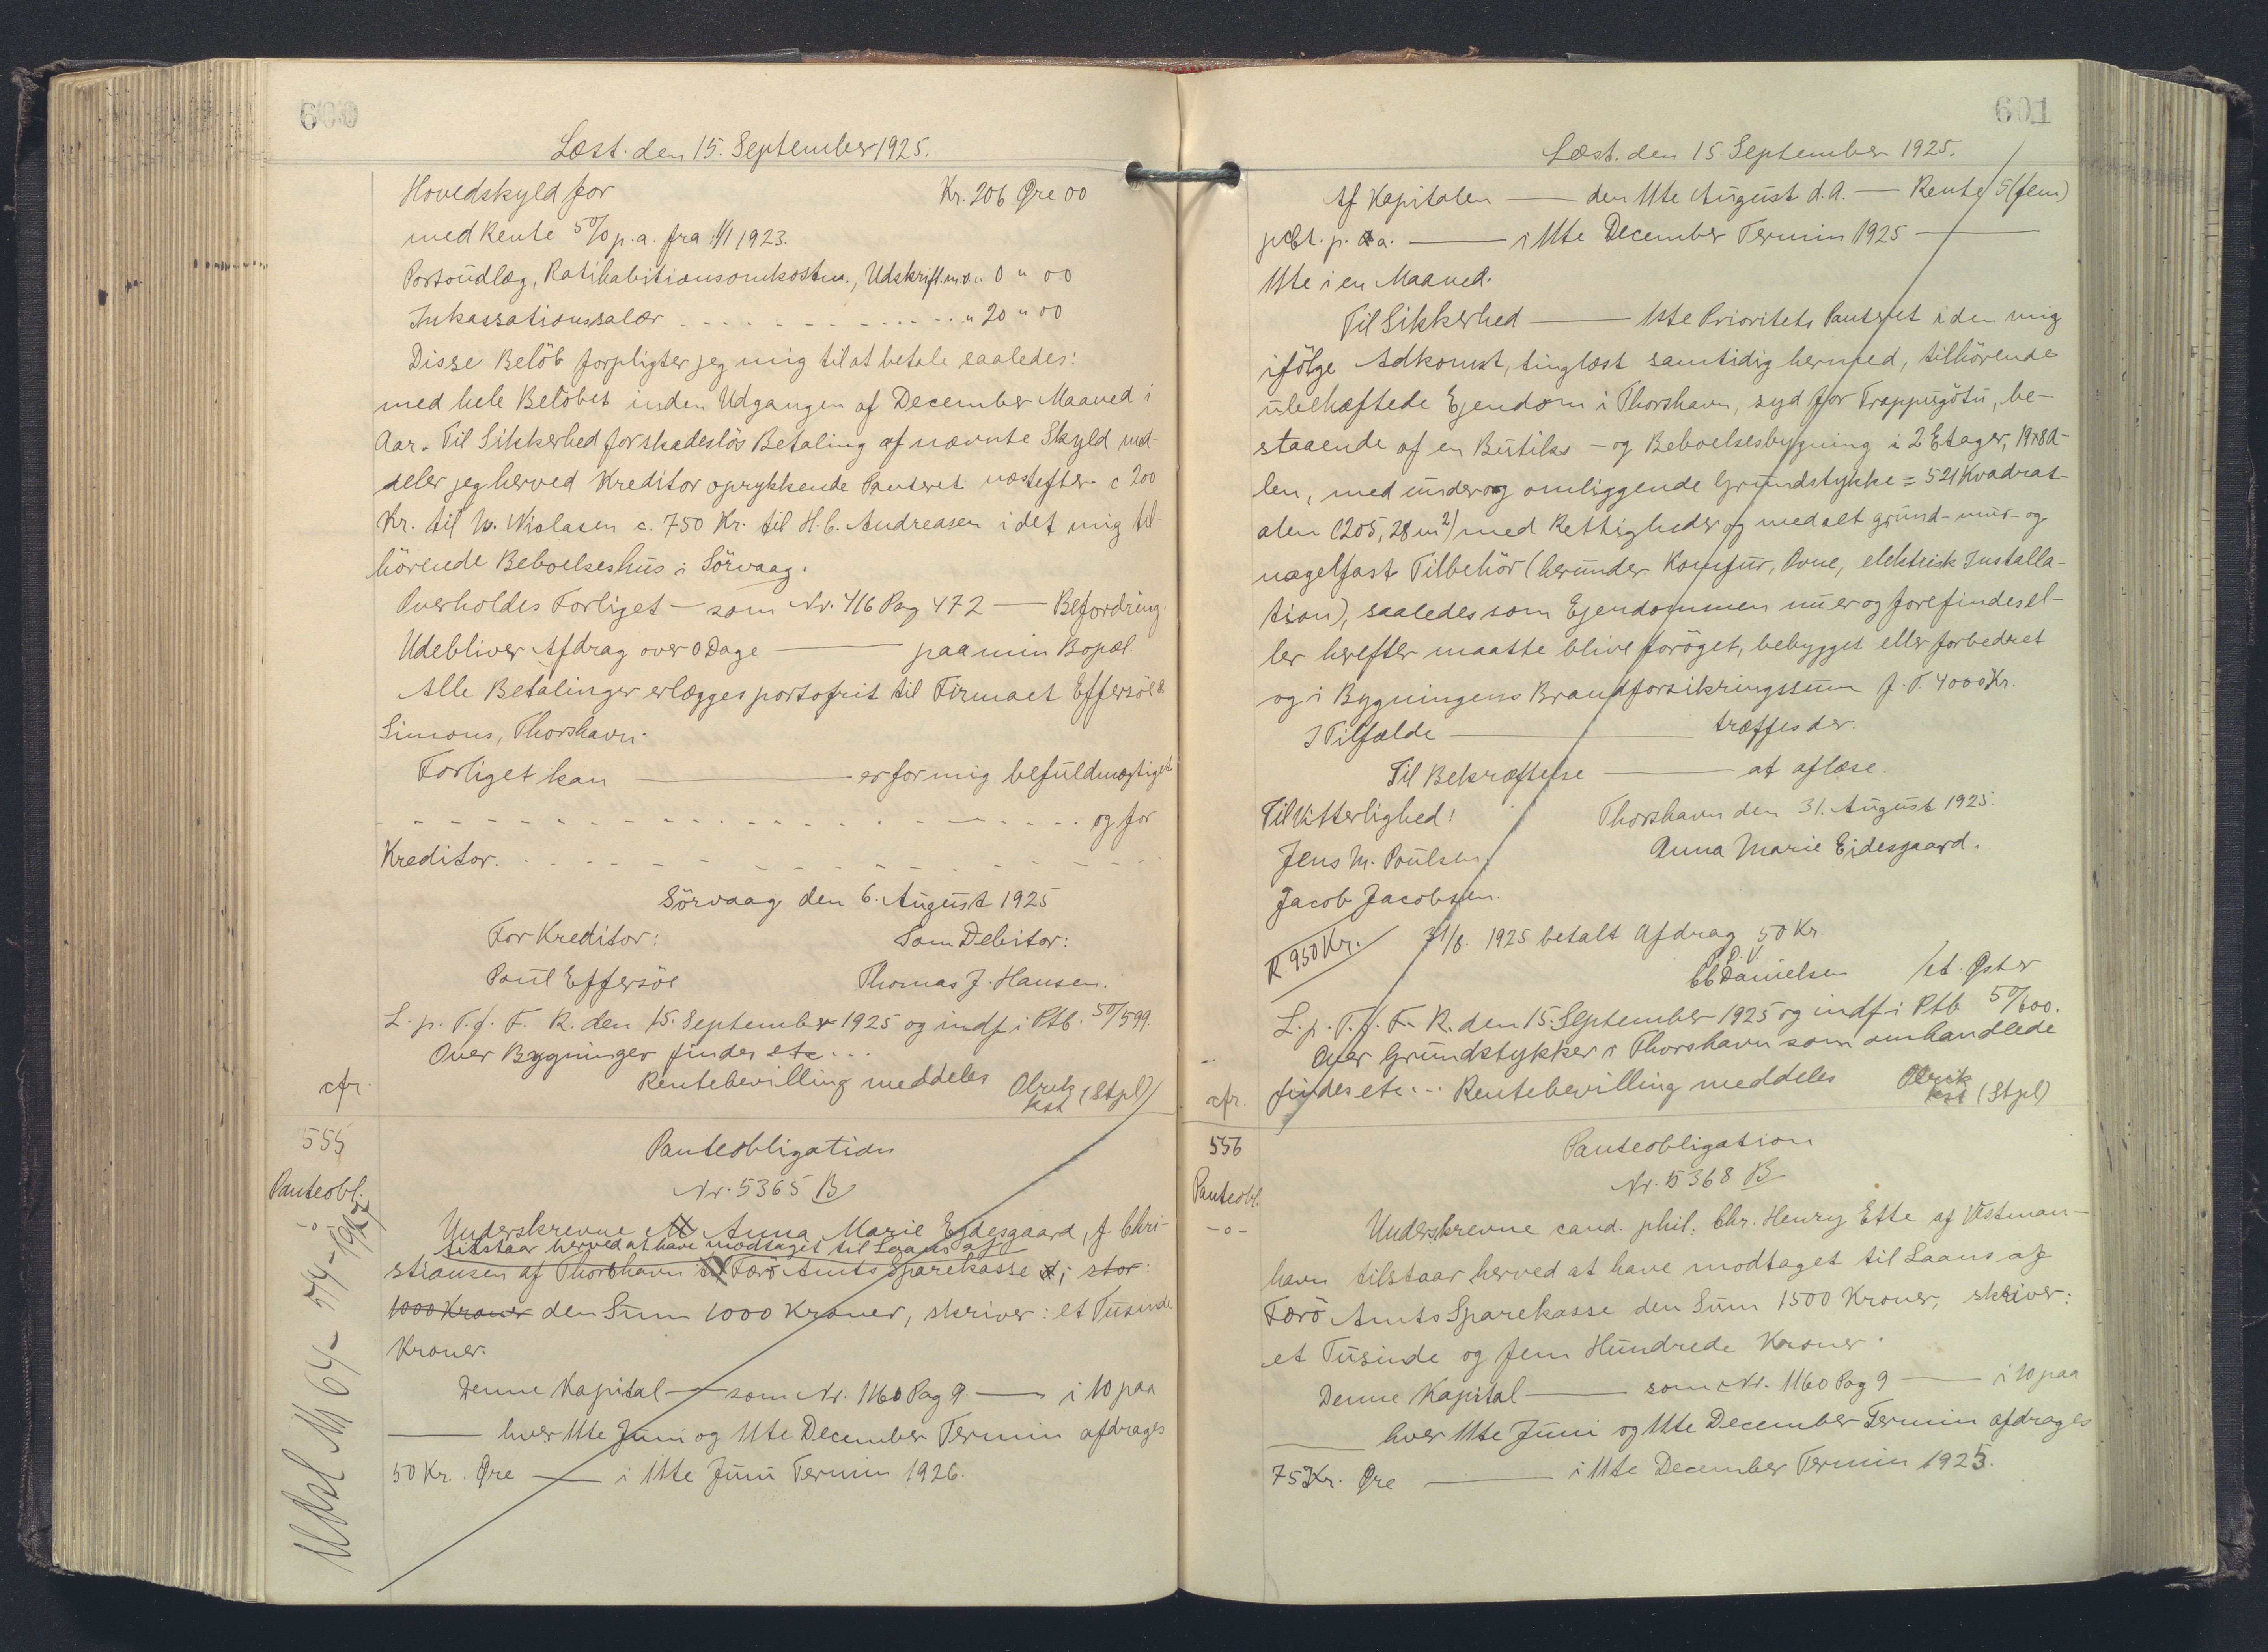 600
Læst. den 15. September 1925.
Hovedskyld for Kr. 206 Øre 00
med Rente 5% p.a. fra 1/1 1923.
Portoudlæg, Ratihabitionsomkostn., Udskrift. m.v. " 0 " 00
Inkassationssalær - - - - - - - - - " 20 " 00
Disse Beløb forpligter jeg mig til at betale saaledes:
med hele Beløbet inden Udgangen af December Maaned i
Aar. Til Sikkerhed for skadesløs Betaling af nævnte Skyld med-
deler jeg herved Kreditor oprykkende Panteret næstefter c. 200
Kr. til W. Niclasen c. 750 Kr. til H. C. Andreasen i det mig til-
hörende Beboelseshus i Sörvaag.
Overholdes Forliget — som Nr. 416 Pag 472 — Befordring.
Udebliver Afdrag over 0 Dage — paa min Bopæl.
Alle Betalinger erlægges portofrit til Firmaet Effersöe &
Simons, Thorshavn.
Forliget kan — er for mig befuldmægtiget
- - - - - - - - - - - - - - - og for
Kreditor. - - - - - - - - - - - -
Sörvaag den 6. August 1925
For Kreditor: Som Debitor:
Poul Effersöe Thomas J. Hansen.
L. p. T. f. F. R. den 15. September 1925 og indf i Ptb. 50/599.
Over Bygninger findes etc...
cfr. Rentebevilling meddeles Olrik
kst (Stpl)
555 Panteobligation
Panteobl. Nr. 5365 B
-o-
Underskrevne M Anna Marie Ejdesgaard, f. Chri-
tilstaar herved at have modtaget til Laans af
stiansen af Thorshavn til Færö Amts Sparekasse ; stor:
1000 Kroner den Sum 1000 Kroner, skriver: et Tusinde
Kroner.
Denne Kapital — som Nr. 1160 Pag 9. — i 10 paa
— hver 11te Juni og 11te December Termin afdrages
50 Kr. Øre — i 11te Juni Termin 1926.
601
Læst. den 15 September 1925.
Af Kapitalen — den 11te August d.A. — Rente 5 (fem)
pCt. p. a. — i 11te December Termin 1925 —
11te i en Maaned.
Til Sikkerhed — 1ste Prioritets Panteret i den mig
ifölge Adkomst, tinglæst samtidig hermed, tilhörende
ubehæftede Ejendom i Thorshavn, syd for Trappugötu, be-
staaende af en Butiks - og Beboelsesbygning i 2 Etager, 19x8 A-
len, med under og omliggende Grundstykke = 521 Kvadrat-
alen (205,28 m²) med Rettigheder og med alt grund- mur- og
nagelfast Tilbehör (herunder Komfur, Ovne, elektrisk Installa-
tion), saaledes som Ejendommen nu er og forefindes el-
ler herefter maatte blive foröget, bebygget eller forbedret
og i Bygningens Brandforsikringssum f. T. 4000 Kr.
I Tilfælde — træffes der.
Til Bekræftelse — at aflæse.
Til Vitterlighed! Thorshavn den 31. August 1925.
Jens M. Poulsen. Anna Marie Eidesgaard.
Jacob Jacobsen.
R 950 Kr. 31/8. 1925 betalt Afdrag 50 Kr.
P. D. V.
CC Danielsen /et. Øster
L. p. T. f. F. R. den 15. September 1925 og indf i Ptb 50/600.
Over Grundstykker i Thorshavn som omhandlede
cfr. findes etc... Rentebevilling meddeles Olrik
kst (Stpl)
556 Panteobligation
Panteobl. Nr. 5368 B
-o-
Underskrevne cand. phil. Chr. Henry Ette af Vestman-
havn tilstaar herved at have modtaget til Laans af
Færö Amts Sparekasse den Sum 1500 Kroner, skriver:
et Tusinde og fem Hundrede Kroner.
Denne Kapital — som Nr. 1160 Pag 9 — i 10 paa
— hver 11te Juni og 11te December Termin afdrages
75 Kr. Øre — i 11te December Termin 1925.